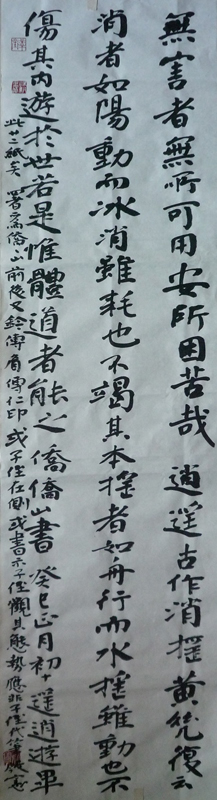 無害者無所可用安所困苦哉 逍遥古作消摇黄幾復云
消者如陽動而冰消雖耗也不竭其本摇者如舟行而水摇雖動也不
傷其内遊於世若是惟體道者能之 僑僑山書 癸巳正月初十逍遥遊畢
此二紙矣 署 俗 前後文 傳 傳仁印 或子侄在側或書示子侄觀其態勢應非子侄代